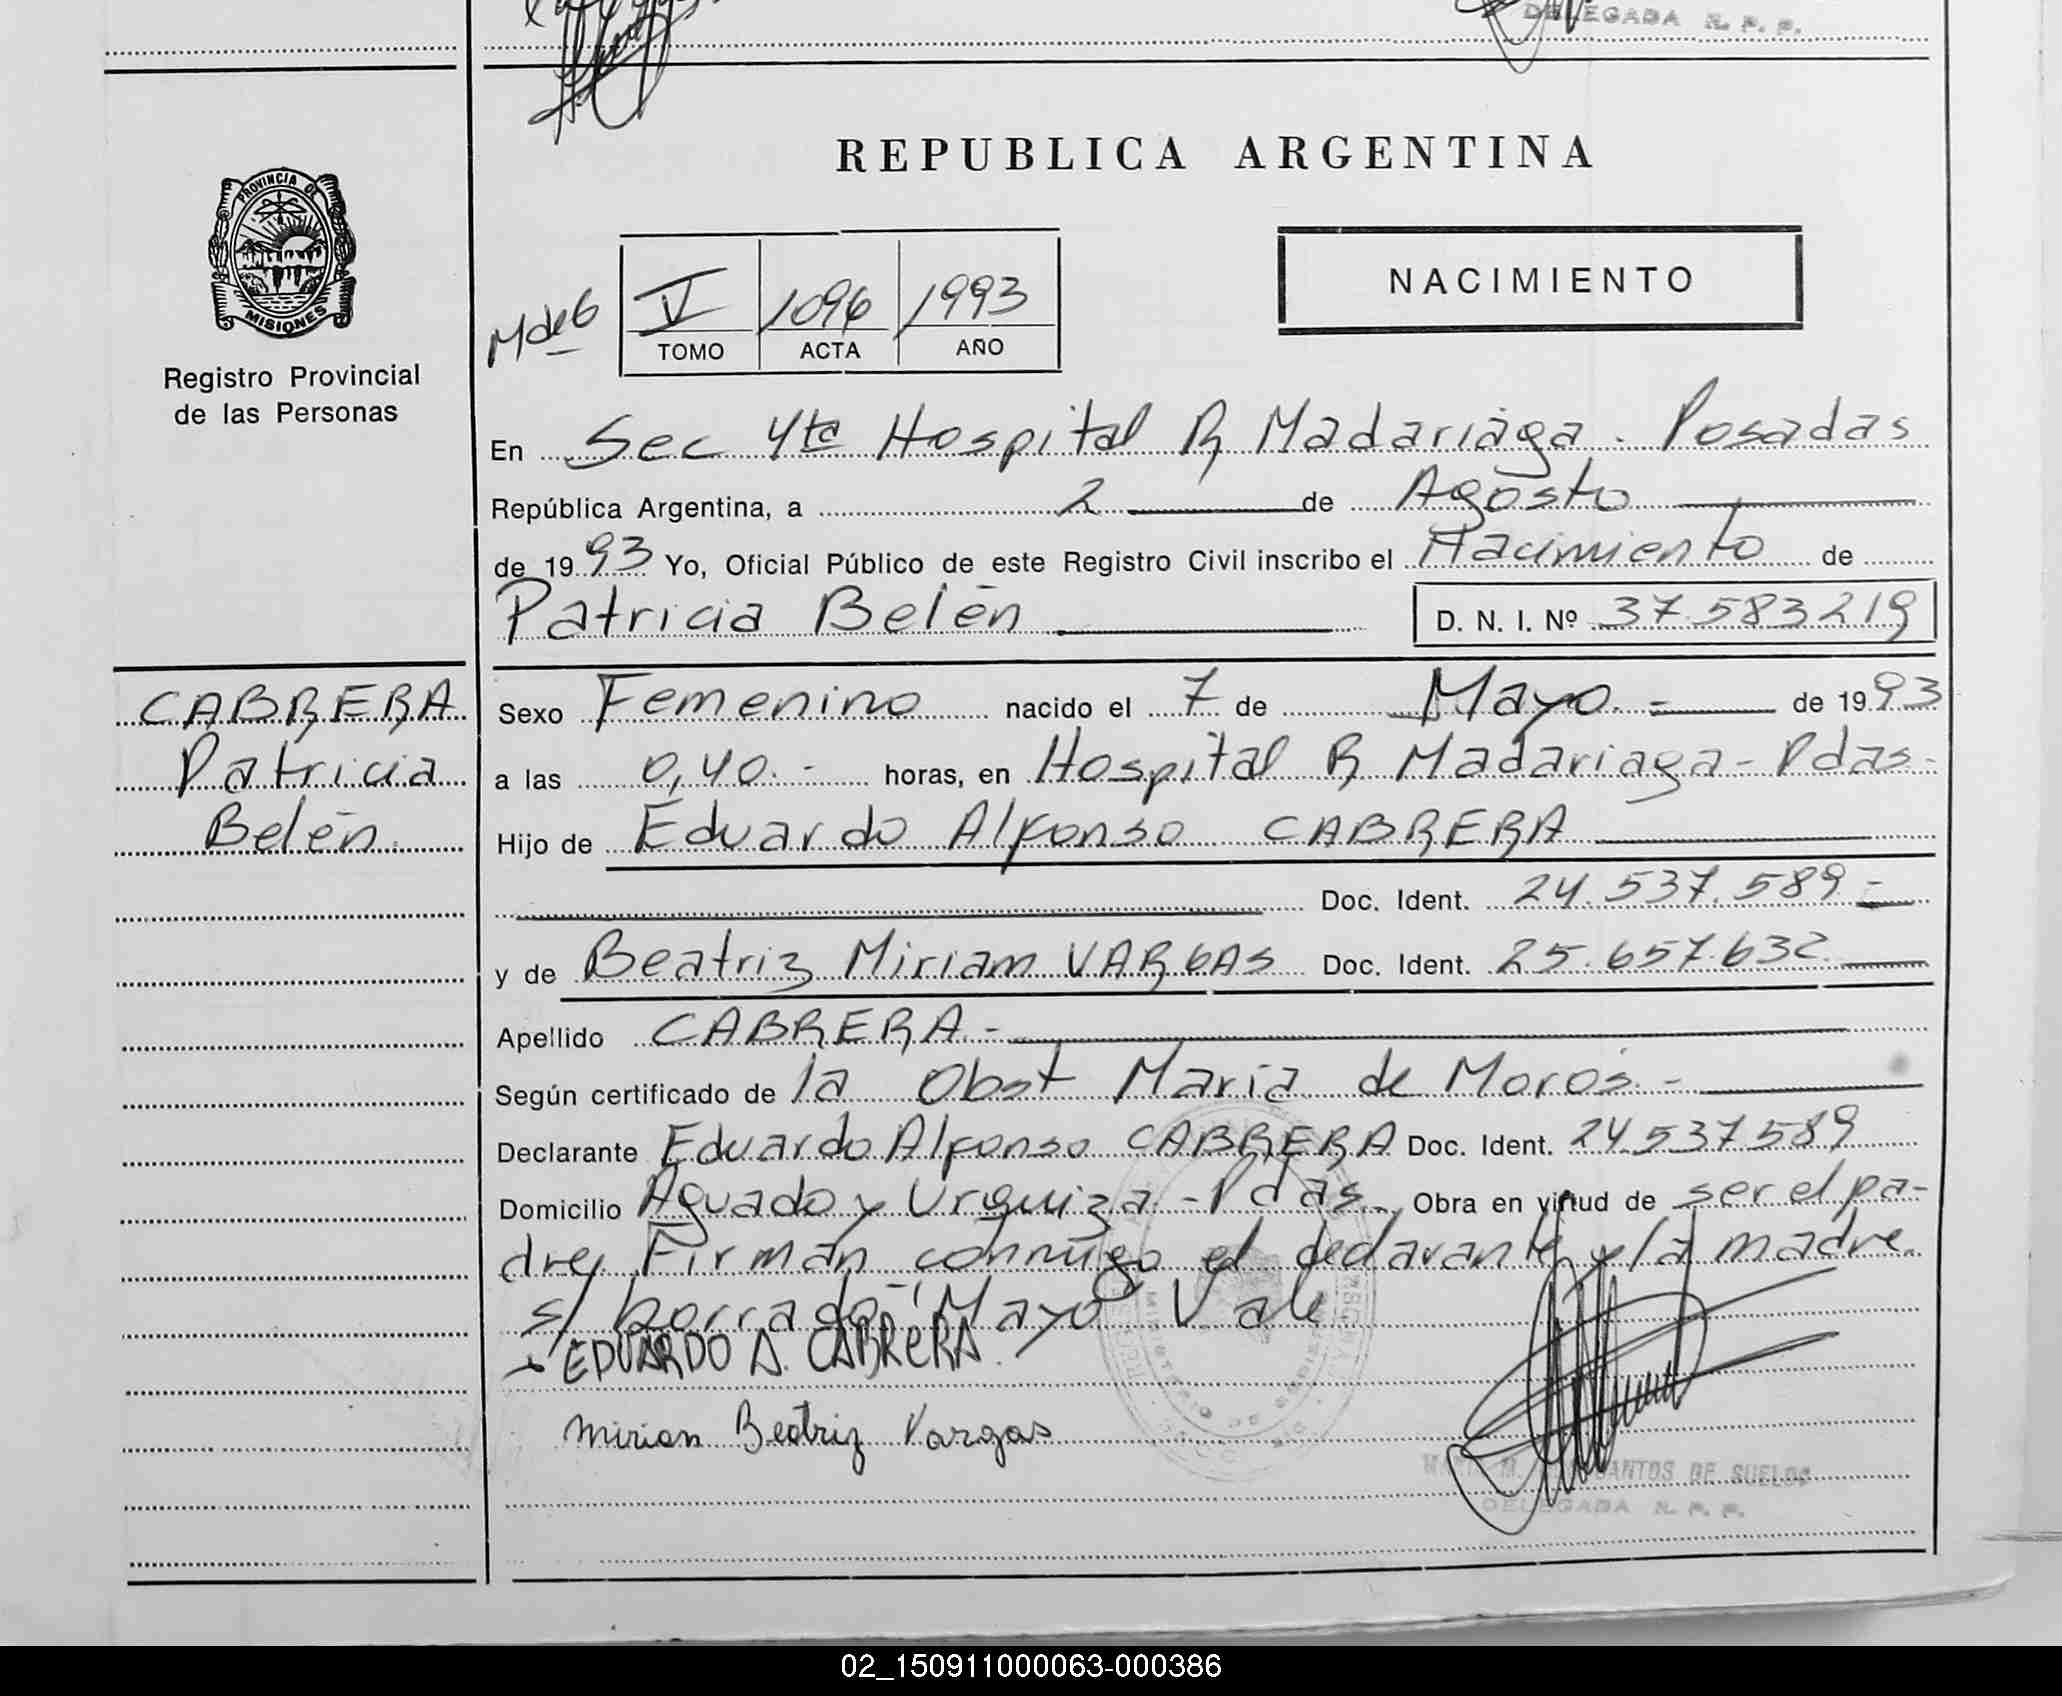 DELEGADA R. P. P.
REPUBLICA ARGENTINA
PROVINCIA DE
MISIONES
Registro Provincial
de las Personas
NACIMIENTO
V 1096 1993
TOMO ACTA AÑO
En Sec 4ta Hospital R Madariaga - Posadas
República Argentina, a 2 de Agosto
de 1993 Yo, Oficial Público de este Registro Civil inscribo el Nacimiento de
Patricia Belén D. N. I. Nº 37.583219
CABRERA
Patricia
Belén
Sexo Femenino nacido el 7 de Mayo.- de 1993
a las 0,40.- horas, en Hospital R Madariaga - Pdas-
Hijo de Eduardo Alfonso CABRERA
Doc. Ident. 24.537.589-
y de Beatriz Miriam VARGAS Doc. Ident. 25.657.632
Apellido CABRERA.-
Según certificado de la Obst María de Moros.-
Declarante Eduardo Alfonso CABRERA Doc. Ident. 24.537.589
Domicilio Aguado y Urquiza - Pdas. Obra en virtud de ser el pa-
dre, Firman conmigo el declarante y la madre.
s/ borrado-"Mayo" Vale
EDUARDO A. CABRERA.
Mirian Beatriz Vargas
SANTOS DE SUELOS
DELEGADA R. P. P.
02_150911000063-000386